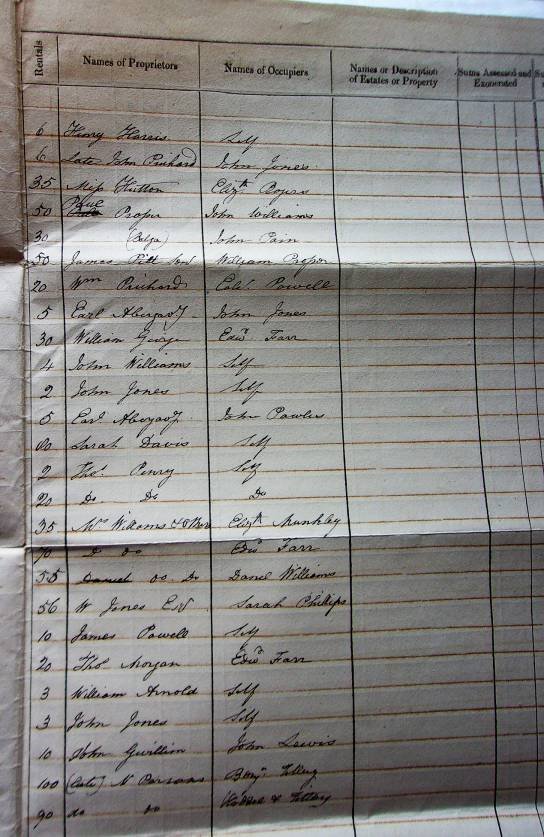 Rentals Names of Proprietors Names of Occupiers Names or Description of Estates or Property Sums Assessed and Exonerated
6 Henry Harris Self
6 Late John Prichard John Jones
35 Miss Hutton Elizth Rogers
50 Proper John Williams
30 John Pain
50 James Pitt William
20 Wm Prichard Powell
5 Earl Abergavy John Jones
30 William George Edwd Farr
4 John Williams Self
2 John Jones Self
5 Earl Abergavy John Powles
Sarah Davis Self
2 Thos Penry Self
20 Do Do Do
35 Mrs Williams & Elizth Munkley
70 Do Do Edwd Farr
55 Do Do Daniel Williams
56 W Jones Esq Sarah Phillips
10 James Powell Self
20 Thos Morgan Edwd Farr
3 William Arnold Self
3 John Jones Self
10 John Gwillim John Lewis
100 (Late) N Parsons Benjn
90 do do